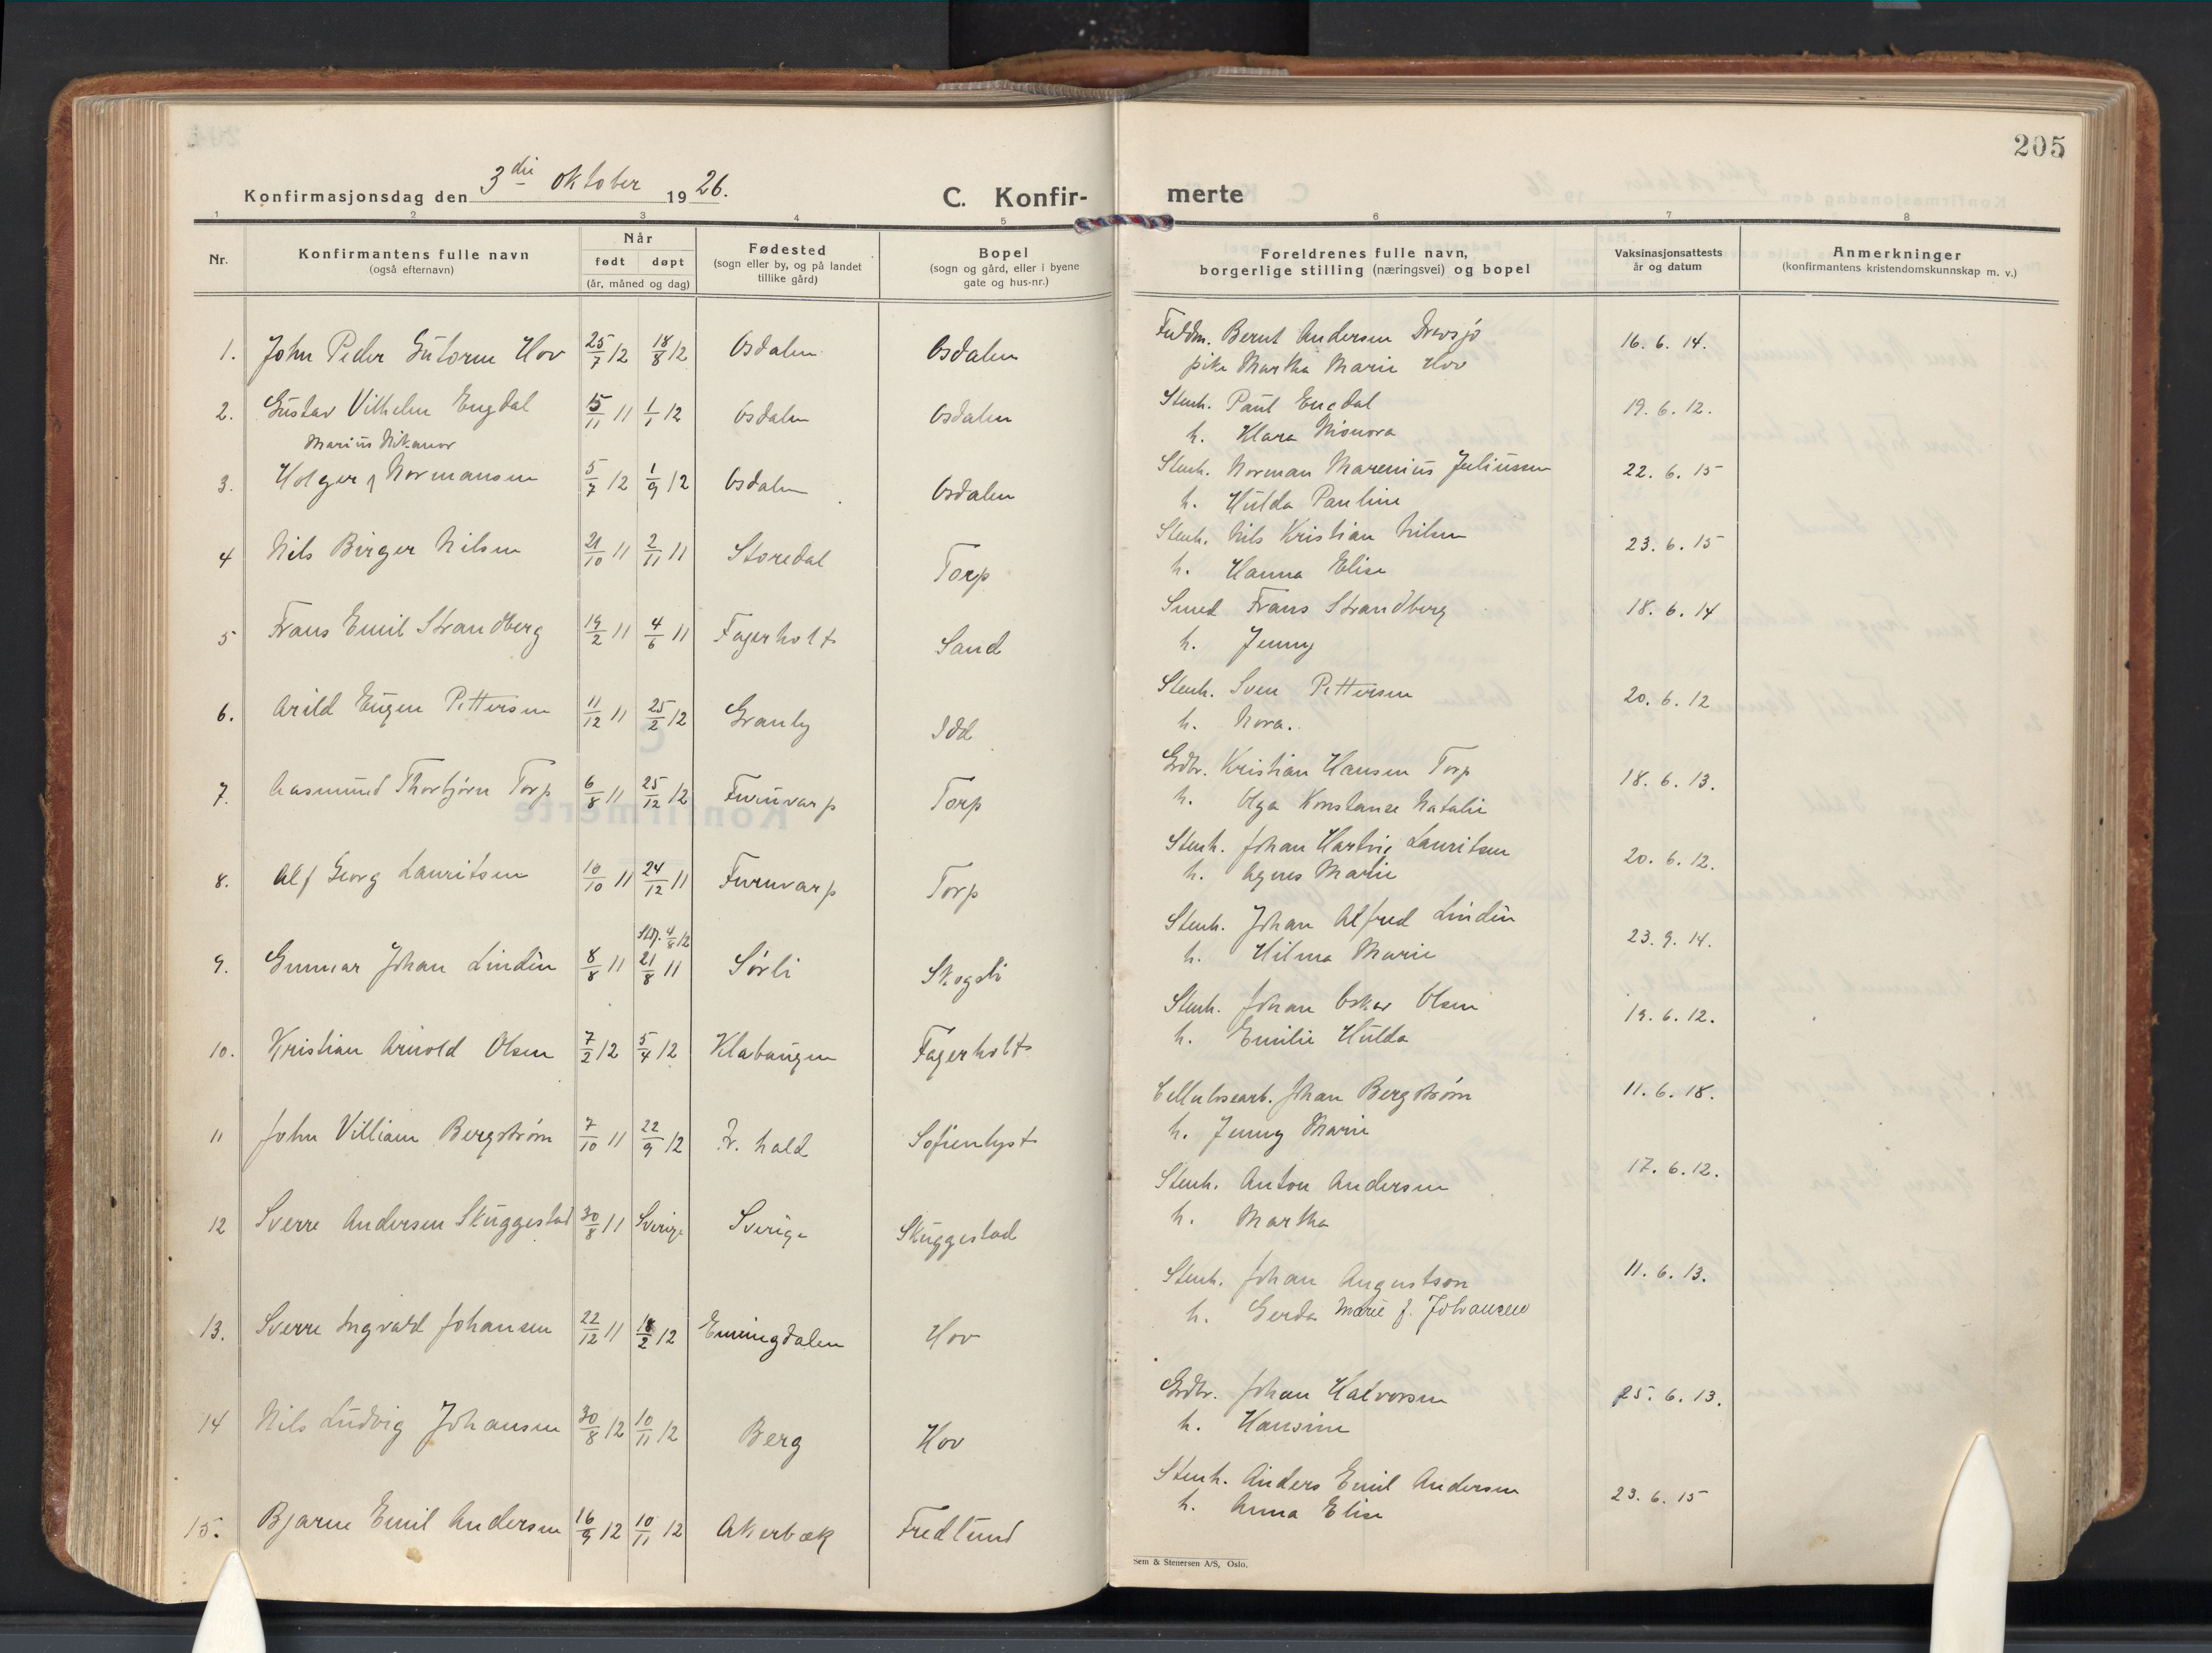 205
Konfirmasjonsdag den 3die oktober 1926.
C. Konfir-
merte
1 2 3 4 5 6 7 8
Nr.
Konfirmantens fulle navn
(også efternavn)
Når
født døpt
(år, måned og dag)
Fødested
(sogn eller by, og på landet
tillike gård)
Bopel
(sogn og gård, eller i byene
gate og hus-nr.)
Foreldrenes fulle navn,
borgerlige stilling (næringsvei) og bopel
Vaksinasjonsattests
år og datum
Anmerkninger
(konfirmantens kristendomskunnskap m. v.)
1. John Peder Gutorm Hov 25/7 12 18/8 12 Osdalen Osdalen
Fuldm. Bernt Andersen 16. 6. 14.
pike Martha Marie Hov
2. Gustav Vilhelm Engdal 15/11 11 1/1 12 Osdalen Osdalen
Stenh. Paul Engdal 19. 6. 12.
h. Klara
Marius Nikanor
3. Holger Normansen 5/7 12 1/9 12 Osdalen Osdalen
Stenh. Norman Marenius Juliussen 22. 6. 15
h. Hulda Pauline
4 Nils Birger Nilsen 21/10 11 2/11 11 Storedal Torp
Stenh. Nils Kristian Nilsen 23. 6. 15
h. Hanna Elise
5 Frans Emil Strandberg 19/2 11 4/6 11 Fagerholt Sand
Smed Frans Strandberg 18. 6. 14
h. Jenny
6. Arild Eugen Pettersen 11/12 11 25/2 12 Granby Idd
Stenh. Sven Pettersen 20. 6. 12
h. Nora.
7. Aasmund Thorbjørn Torp 6/8 11 25/12 12 Furuvarp Torp
Grdbr. Kristian Hansen Torp 18. 6. 13.
h. Olga Konstanse Natalie
8. Alf Georg Lauritsen 10/10 11 24/12 11 Furuvarp Torp
Stenh. Johan Hartvig Lauritsen 20. 6. 12.
h. Agnes Marie
4/8 12
9. Gunnar Johan Lindin 8/8 11 21/8 11 Sørli Skogsli
Stenh. Johan Alfred Lindin 23. 9. 14.
h. Hilma Marie
10. Kristian Arnold Olsen 7/2 12 5/4 12 Klabaugen Fagerholt
Stenh. Johan Oskar Olsen 19. 6. 12.
h. Emilie Hulda
11 John Villiam Bergstrøm 7/10 11 22/9 12 Fr. hald Sofienlyst
Cellulosearb. Johan Bergstrøm 11. 6. 18.
h. Jenny Marie
12 Sverre Andersen Skuggestad 30/8 11 Sverige Sverige Skuggestad
Stenh. Anton Andersen 17. 6. 12.
h. Martha
13. Sverre Ingvald Johansen 22/12 11 18/2 12 Enningdalen Hov
Stenh. Johan Augustson 11. 6. 13.
h. Gerda Marie f. Johansen
14 Nils Ludvig Johansen 30/8 12 10/11 12 Berg Hov
Grdbr. Johan Halvorsen 25. 6. 13.
h. Hansine
15. Bjarne Emil Andersen 16/9 12 10/11 12 Akerbæk Fredlund
Stenh. Anders Emil Andersen 23. 6. 15
h. Anna Elise
Sem & Stenersen A/S, Oslo.